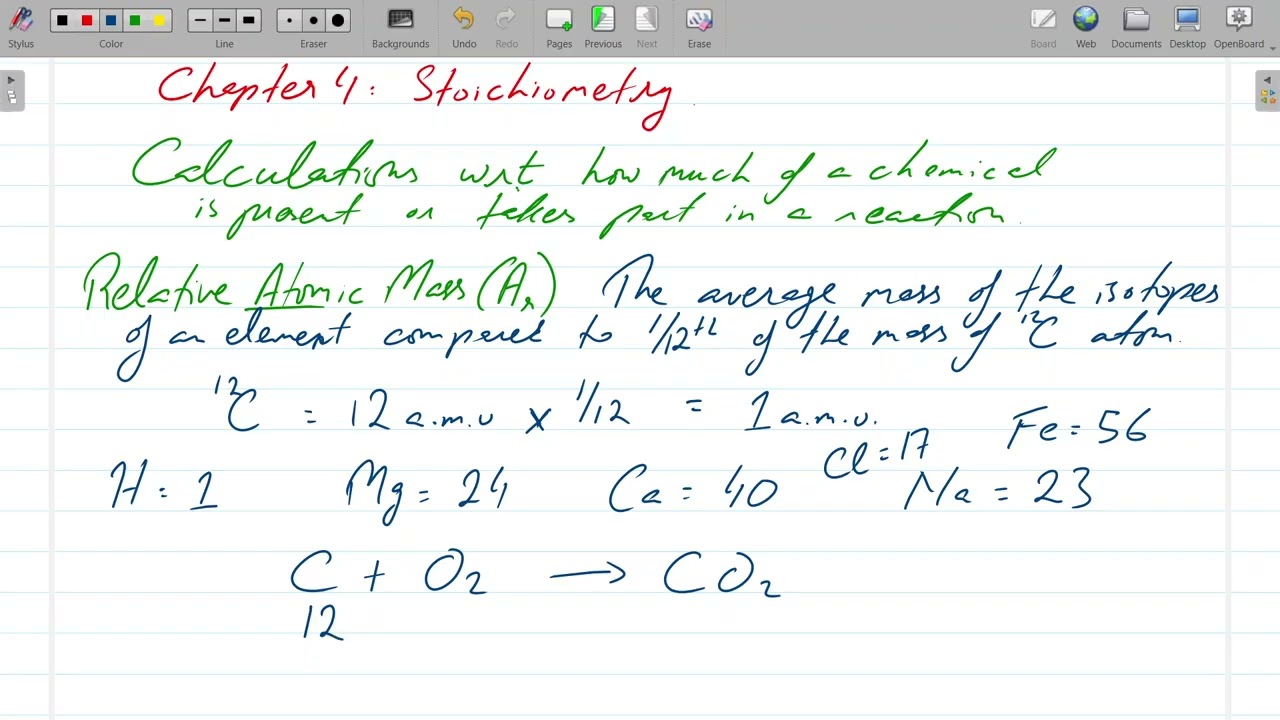 Stylus Color Line Eraser Backgrounds Undo Redo Pages Previous Next Erase Board Web Documents Desktop OpenBoard
Chapter 4: Stoichiometry
Calculations wrt how much of a chemical
is present or takes part in a reaction.
Relative Atomic Mass (Ar) The average mass of the isotopes
of an element compared to 1/12th of the mass of ¹²C atom.
¹²C = 12 a.m.u x 1/12 = 1 a.m.u.
Cl = 17 Fe = 56
H = 1 Mg = 24 Ca = 40 Na = 23
C + O₂ → CO₂
12